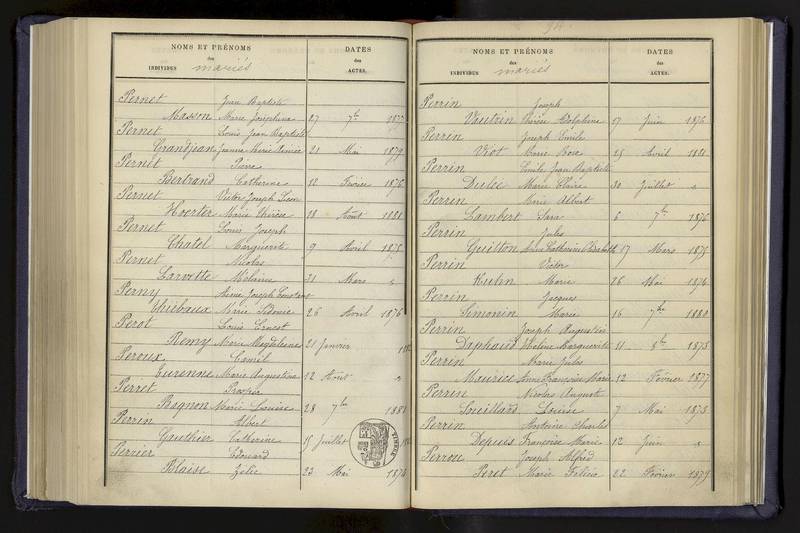 NOMS ET PRÉNOMS
des
INDIVIDUS mariés
DATES
des
ACTES.
Pernet Jean Baptiste
Masson Marie Joséphine 27 7bre 1877
Pernet Louis Jean Baptiste
Grandjean Jeanne Marie 21 Mai 1879
Pernet Pierre
Bertrand Catherine 12 Février 1876
Pernet Victor Joseph Léon
Hoerter Marie Thérèse 18 Août 1881
Pernet Louis Joseph
Chatel Marguerite 9 Avril 1875
Pernet Nicolas
Larvette Mélanie 31 Mars "
Perny Joseph Constant
Thiébaux Marie Sidonie 26 Avril 1876
Perot Louis Ernest
Remy Marie Magdeleine 21 Janvier
Peroux Camil
Turenne Marie Augustine 12 Août "
Perret Prosper
Bagnon Marie Louise 28 7bre 1881
Perrin Albert
Gauthier Catherine 15 Juillet
Perrier Edouard
Blaise Zélie 23 Mai 1874
NOMS ET PRÉNOMS
des
INDIVIDUS mariés
DATES
des
ACTES.
Perrin Joseph
Voutrin Delphine 17 Juin 1876
Perrin Joseph Emile
Viot Marie Rose 25 Avril 1881
Perrin Emile Jean Baptiste
Dulée Marie Claire 30 Juillet "
Perrin Albert
Lambert Sara 6 7bre 1876
Perrin Jules
Guilton Anne Catherine 17 Mars 1875
Perrin Victor
Kuhn Marie 26 Mai 1874
Perrin Jacques
Simonin Marie 16 7bre 1880
Perrin Joseph Augustin
Daphaud Marguerite 11 8bre 1873
Perrin Marie Jules
Maurice Anne Françoise Marie 12 Février 1877
Perrin Nicolas August
Souillard Louise 7 Mai 1873
Perrin Antoine Charles
Depues Françoise Marie 12 Juin "
Perrou Joseph Alfred
Peret Marie Félicie 22 Février 1879